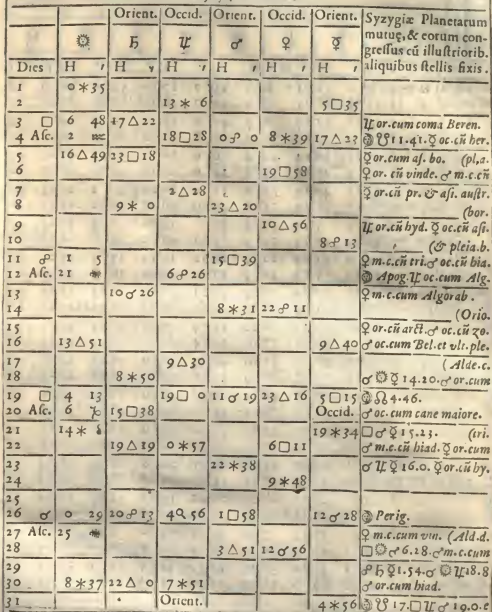 Orient. Occid. Orient. Occid. Orient. Syzygiæ Planetarum
mutuę, & eorum con-
☉ ♄ ♃ ♂ ♀ ☿ greſſus cū illuſtriorib.
Dies H ′ H ′ H ′ H ′ H ′ H ′ aliquibus ſtellis fixis.
1 0 ✶ 35
2 13 ✶ 6 5 □ 35
3 □ 6 48 17 △ 22 ♃ or.cum coma Beren.
4 Aſc. 2 ♒ 18 □ 28 0 ☍ 0 8 ✶ 39 17 △ 23 ☋ 11.41. ☿ oc.cū her.
5 16 △ 49 23 □ 18 ☿ or.cum aſ. bo. (pl,a.
6 19 □ 58 ♀ or. cū vinde. ♂ m.c.cū
7 2 △ 28 ☿ or.cū pr. & aſi. auſtr.
8 9 ✶ 0 23 △ 20 (bor.
9 10 △ 56 ♃ or.cū hyd. ☿ oc.cū aſi.
10 8 ☍ 13 (& pleia.b.
11 ☍ 1 5 15 □ 39 ♀ m.c.cū tri. ♂ oc.cū bia.
12 Aſc. 21 6 ☍ 26 Apog. ♃ oc.cum Alg.
13 10 ☌ 26 ♀ m.c.cum Algorab.
14 8 ✶ 31 22 ☍ 11 (Orio.
15 ♀ or.cū arct. ♂ oc.cū zo.
16 13 △ 51 9 △ 40 ♂ oc.cum Bel.et vlt.ple.
17 9 △ 30 (Alde.c.
18 8 ✶ 50 ☌ ☉ ☿ 14.20. ♂ or.cum
19 □ 4 13 19 □ 0 11 ☌ 19 23 △ 16 5 □ 15 ☊ 4.46.
20 Aſc. 6 ♑ 15 □ 38 Occid. ♂ oc.cum cane maiore.
21 14 ✶ 19 ✶ 34 □ ♂ ☿ 15.23. (tri.
22 19 △ 19 0 ✶ 57 6 □ 11 ♂ m.c.cū hiad. ☿ or.cum
23 22 ✶ 38 ☌ ♃ ☿ 16.0. ☿ or.cū hy.
24 9 ✶ 48
25
26 ☌ 0 29 20 ☍ 13 4 56 1 □ 58 12 ☌ 28 Perig.
27 Aſc. 25 ♀ m.c.cum vin. (Ald.d.
28 3 △ 51 12 ☌ 56 □ ☉ ♂ 6.28. ♂ m.c.cum
29 ☍ ♄ ☿ 1.54. ☌ ☉ ♃ 18.8
30 8 ✶ 37 22 △ 0 7 ✶ 51 ♂ or.cum hiad.
31 Orient. 4 ✶ 56 ☋ 17. □ ♃ ♂ 19.0.